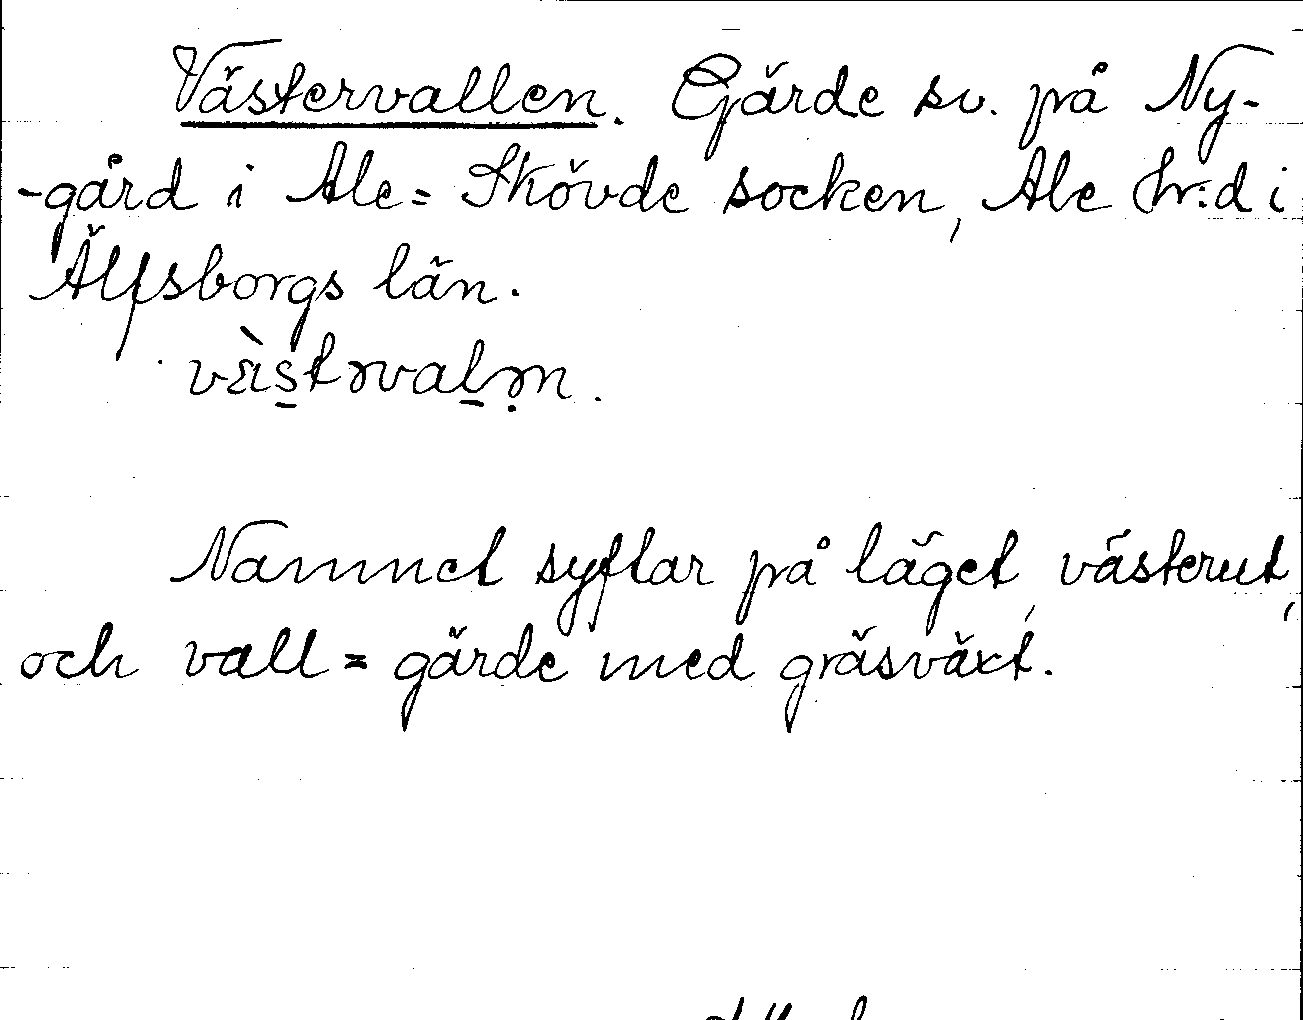 Västervallen. Gärde sv. på Ny-
-gård i Ale=Skövde socken, Ale hr:d i
Älfsborgs län.
Namnet syftar på läget, västerut,
och vall = gärde med gräsväxt.